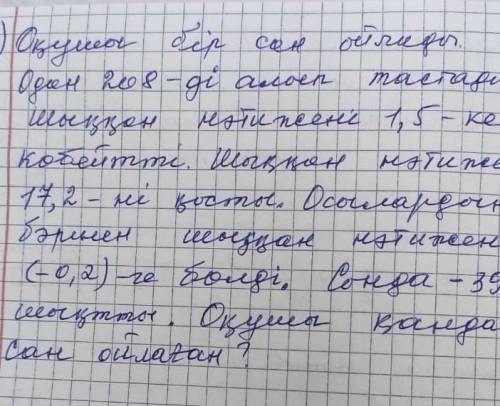 ) Оқушы бір сан ойлады.
Одан 208-ді алып тастады
Шыққан нәтижені 1,5-ке
көбейтті. Шыққан нәтиже
17,2-ні қосты. Осылардың
бәрінен шыққан нәтижен
(-0,2)-ге бөлді. Сонда -39
шықтты. Оқушы қанда
сан ойлаған?